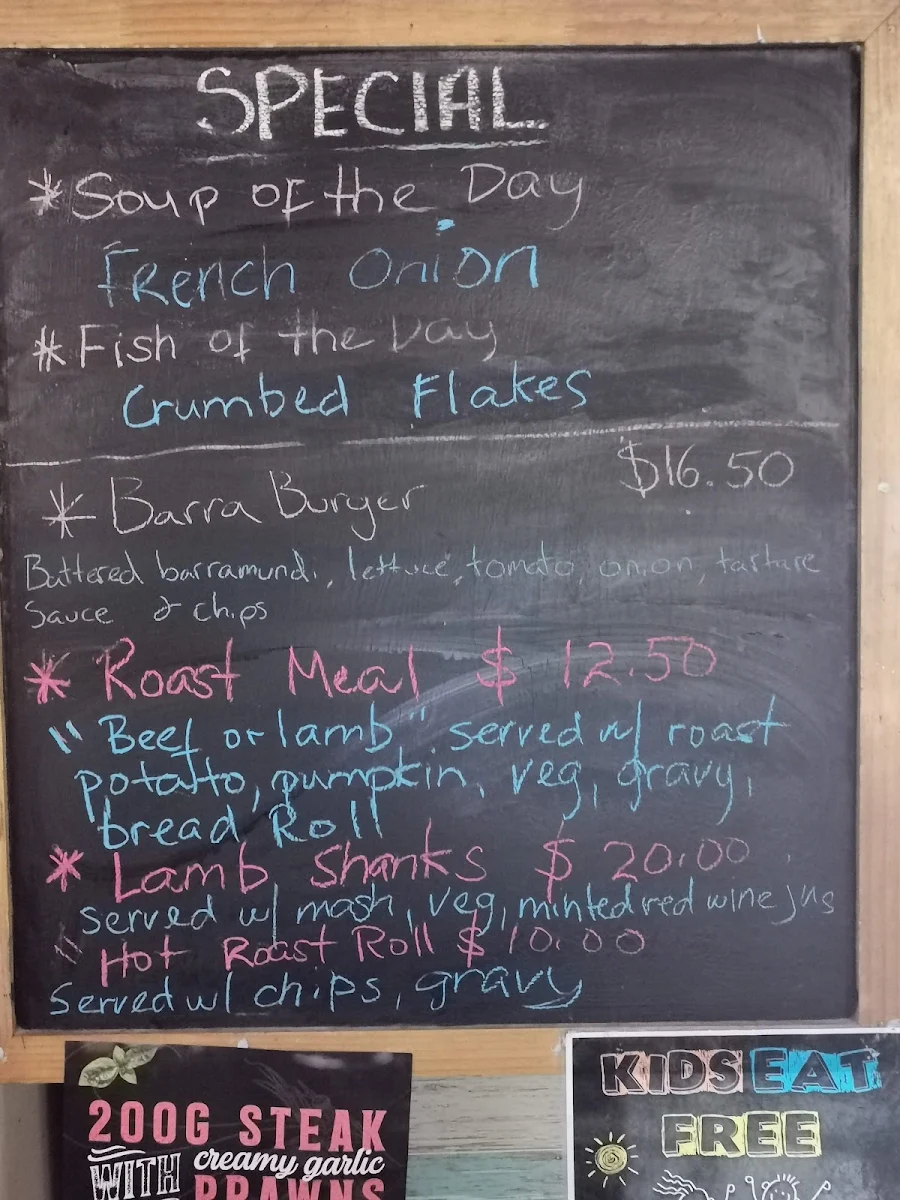 SPECIAL
* Soup of the Day
French Onion
* Fish of the Day
Crumbed Flakes
$16.50
* Barra Burger
Battered barramundi, lettuce, tomato, onion, tartare
Sauce & chips
* Roast Meal $ 12.50
"Beef or lamb" served w/ roast
potatto, pumpkin, veg, gravy,
bread Roll
* Lamb Shanks $ 20.00
served w/ mash, veg, minted red wine jus
Hot Roast Roll $ 10.00
Served w/ chips, gravy
200G STEAK
WITH creamy garlic
PRAWNS
KIDS EAT
FREE